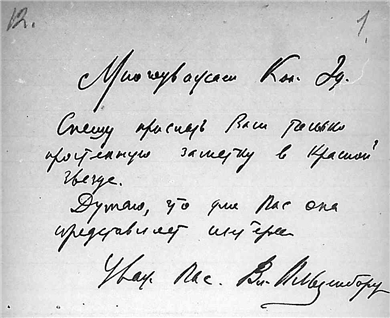 12. 1.
Многоуважаем Кон. Эд.
Спешу прислать Вам только
что заметку в Красной
Звезде.
Думаю, что для Вас она
представляет интерес
Уваж. Вас. Вл.